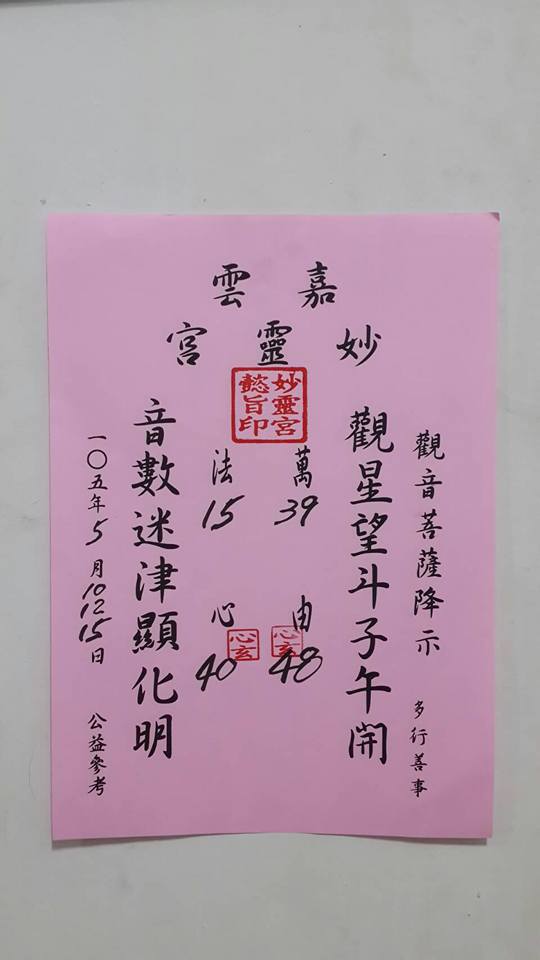 嘉雲
妙靈宮
妙靈宮
懿旨印
觀音菩薩降示 多行善事
觀星望斗子午開
萬39 由48
心玄
法15 心40
心玄
音數迷津顯化明
一〇五年5月10 12 15日 公益參考